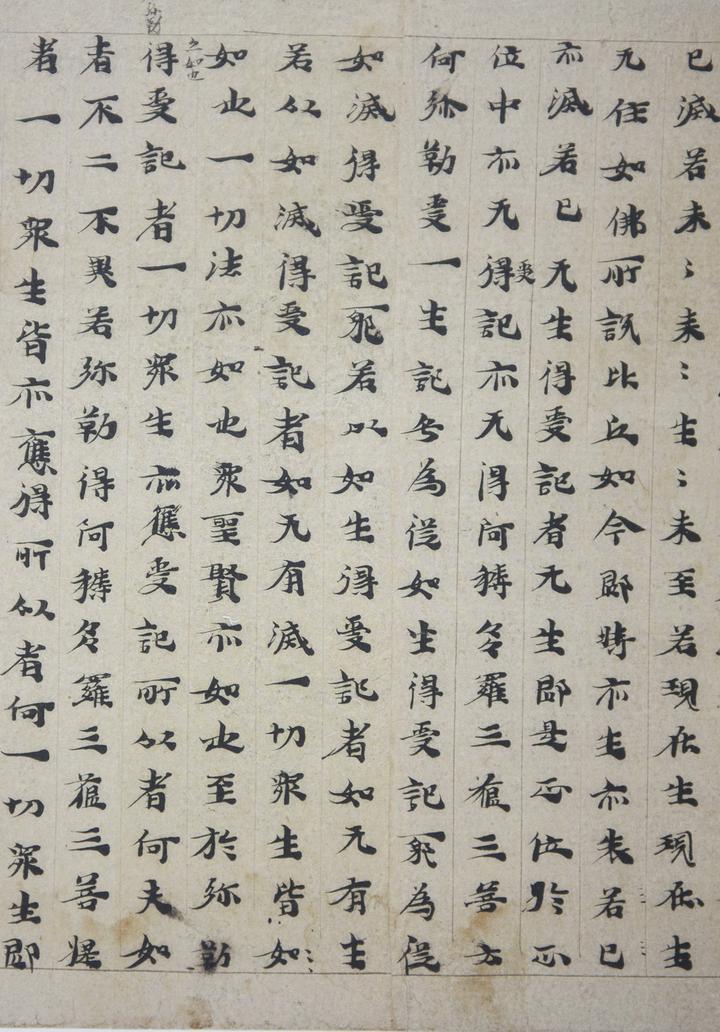 已滅若未〻来〻生〻未至若現在生現在生
无住如佛所說比丘如今即時亦生亦若已
亦滅若已无生得受記者无生即是正位於正
位中亦无得受記亦无得阿耨多羅三藐三菩云
何弥勒受一生記乎為從如生得受記耶為從
如滅得受記耶若以如生得受記者如无有生
若以如滅得受記者如无有滅一切衆生皆如〻
如也一切法亦如也衆聖賢亦如也至於弥勒
弥勒
亦如也
得受記者一切衆生亦應受記所以者何夫如
者不二不異若弥勒得阿耨多羅三藐三菩提
者一切衆生皆亦應得所以者何一切衆生即